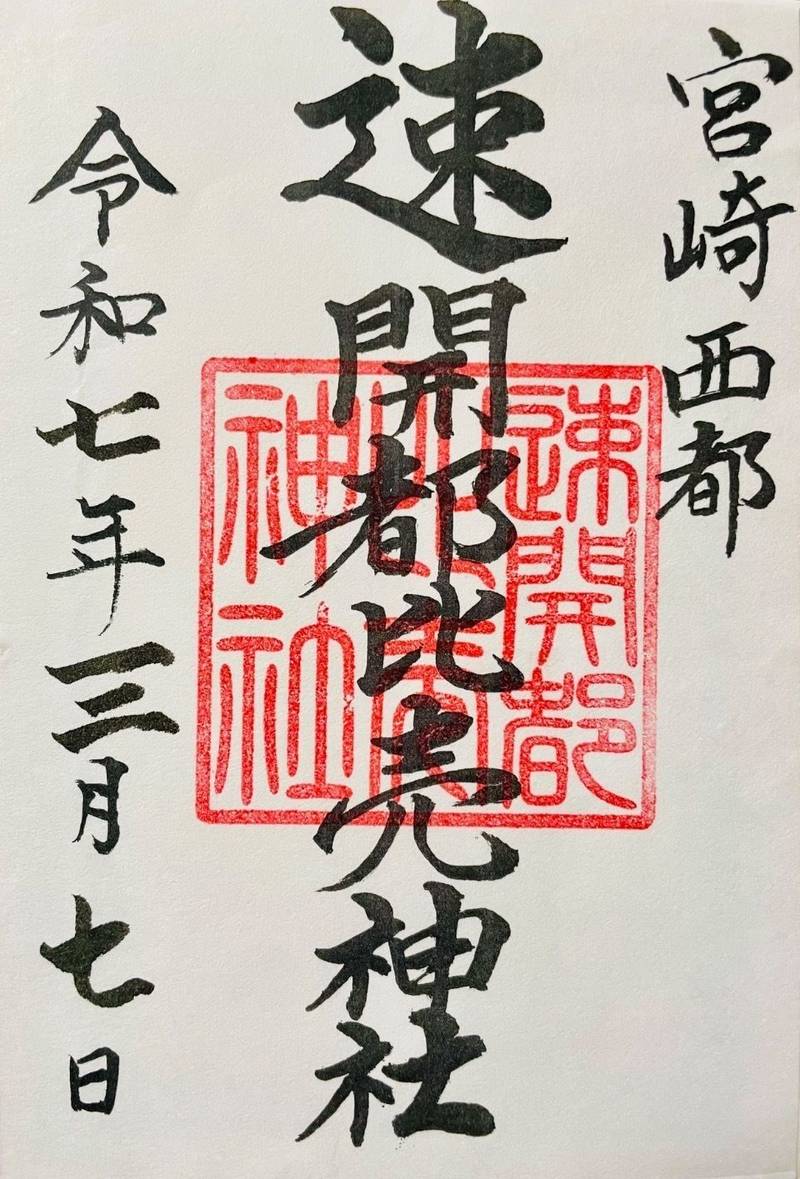 宮崎西都
速開都比売神社
速開都
比売
神社
令和七年三月七日